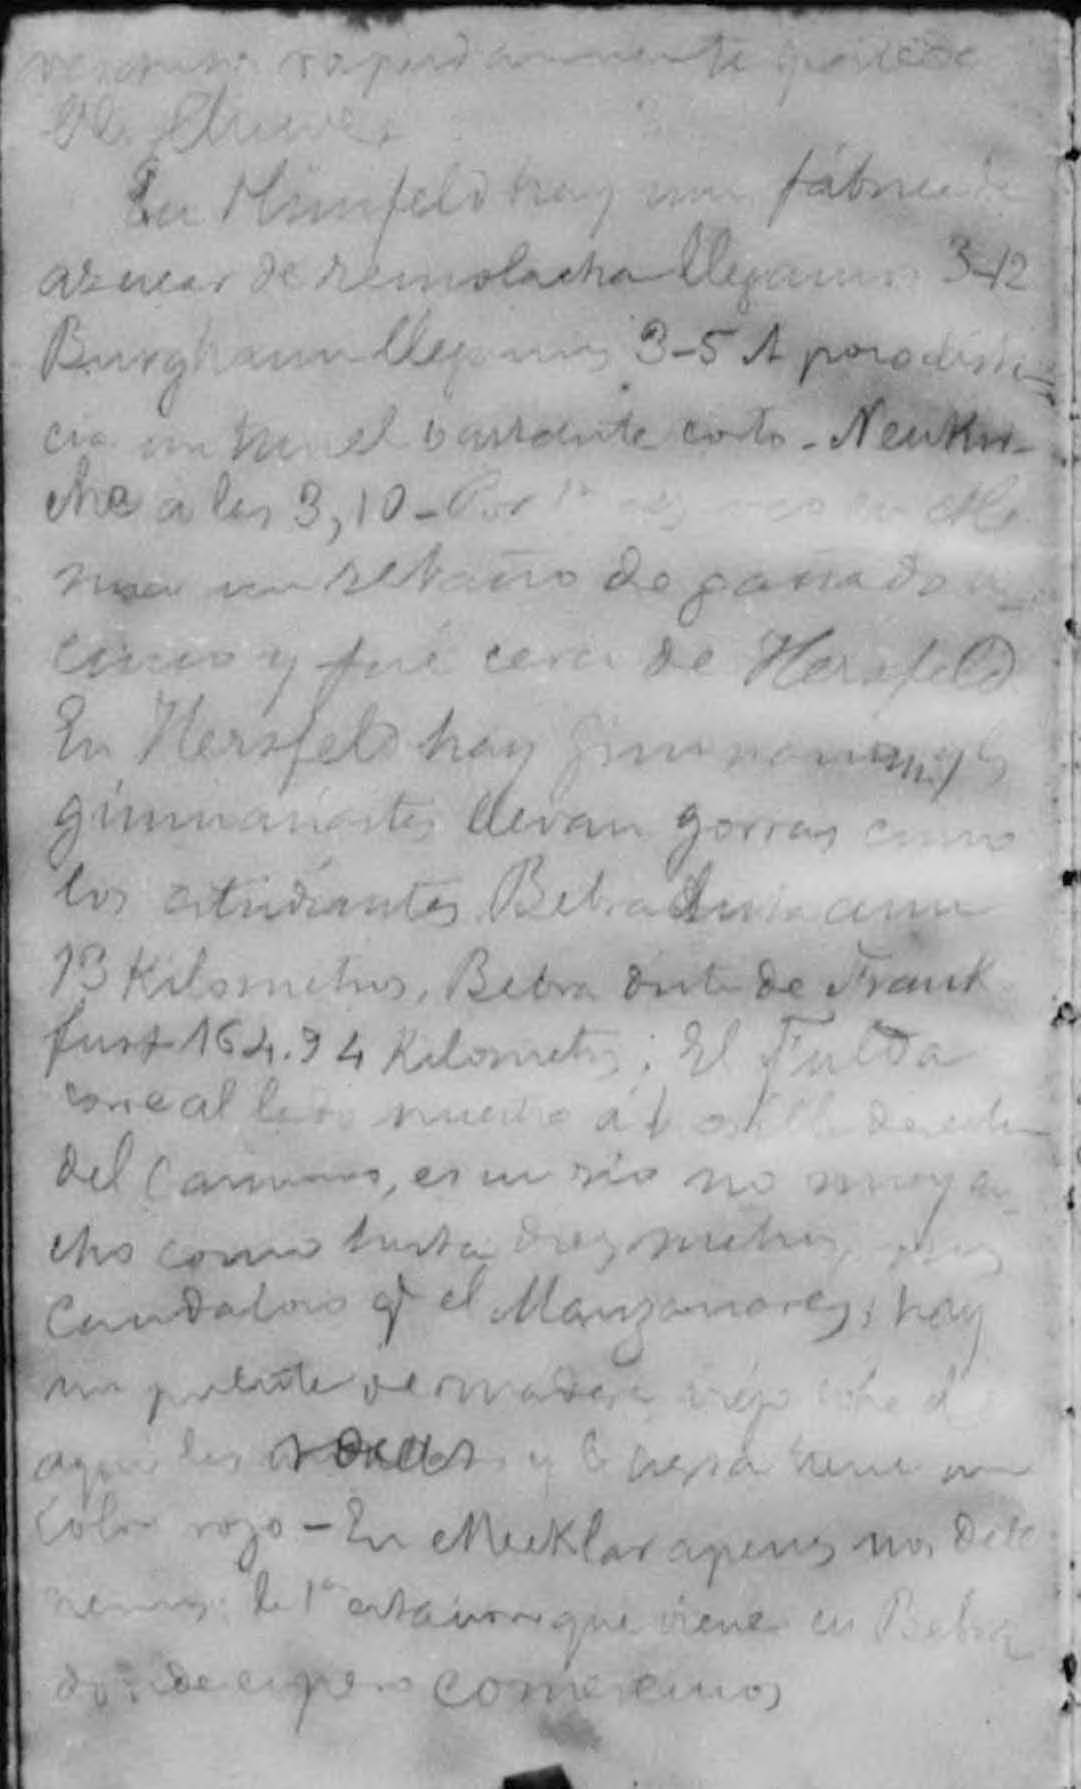 rapidamente parece
llueve.
En Hünfeld hay una fábrica de
azucar de remolacha llegamos 3-12
Burghaun llegamos 3-5 A poca distan-
cia un tunel bastante corto - Neukir-
che a las 3,10 - Por 1ª vez veo en Ale
mania un rebaño de ganado va-
cuno y fué cerca de Hersfeld
En Hersfeld hay gimnasium y los
gimnasiastas llevan gorras como
los estudiantes. Bebra
13 Kilometros. Bebra dista de Frank
furt 164.94 Kilometros; El Fulda
corre al lado nuestro á la orilla derecha
del camino, es un rio no muy an
cho como hasta diez metros, mas
caudaloso q̃ el Manzanares; hay
un puente de madera viejo sobre el
aqui los y la tierra tiene un
color rojo - En Mecklar apenas nos dete
nemos; la 1ª estacion que viene es Bebra
donde espero comeremos